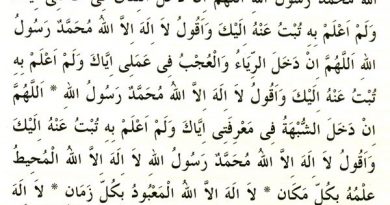 وَلَمْ اَعْلَمْ بِهِ تُبْتُ عَنْهُ اِلَيْكَ وَاَقُولُ لاَ اِلَهَ اِلاَّ اللهُ مُحَمَّدٌ رَسُولُ
اللهِ اَللَّهُمَّ اِنْ دَخَلَ الرِّيَاءُ وَالْعُجْبُ فِى عَمَلِى اِيَّاكَ وَلَمْ اَعْلَمْ بِهِ
تُبْتُ عَنْهُ اِلَيْكَ وَاَقُولُ لاَ اِلَهَ اِلاَّ اللهُ مُحَمَّدٌ رَسُولُ اللهِ * اَللَّهُمَّ
اِنْ دَخَلَ الشُّبْهَةُ فِى مَعْرِفَتِى اِيَّاكَ وَلَمْ اَعْلَمْ بِهِ تُبْتُ عَنْهُ اِلَيْكَ
وَاَقُولُ لاَ اِلَهَ اِلاَّ اللهُ مُحَمَّدٌ رَسُولُ اللهِ لاَ اِلَهَ اِلاَّ اللهُ الْمُحِيطُ
عِلْمُهُ بِكُلِّ مَكَانٍ * لاَ اِلَهَ اِلاَّ اللهُ الْمَعْبُودُ بِكُلِّ زَمَانٍ * لاَ اِلَهَ